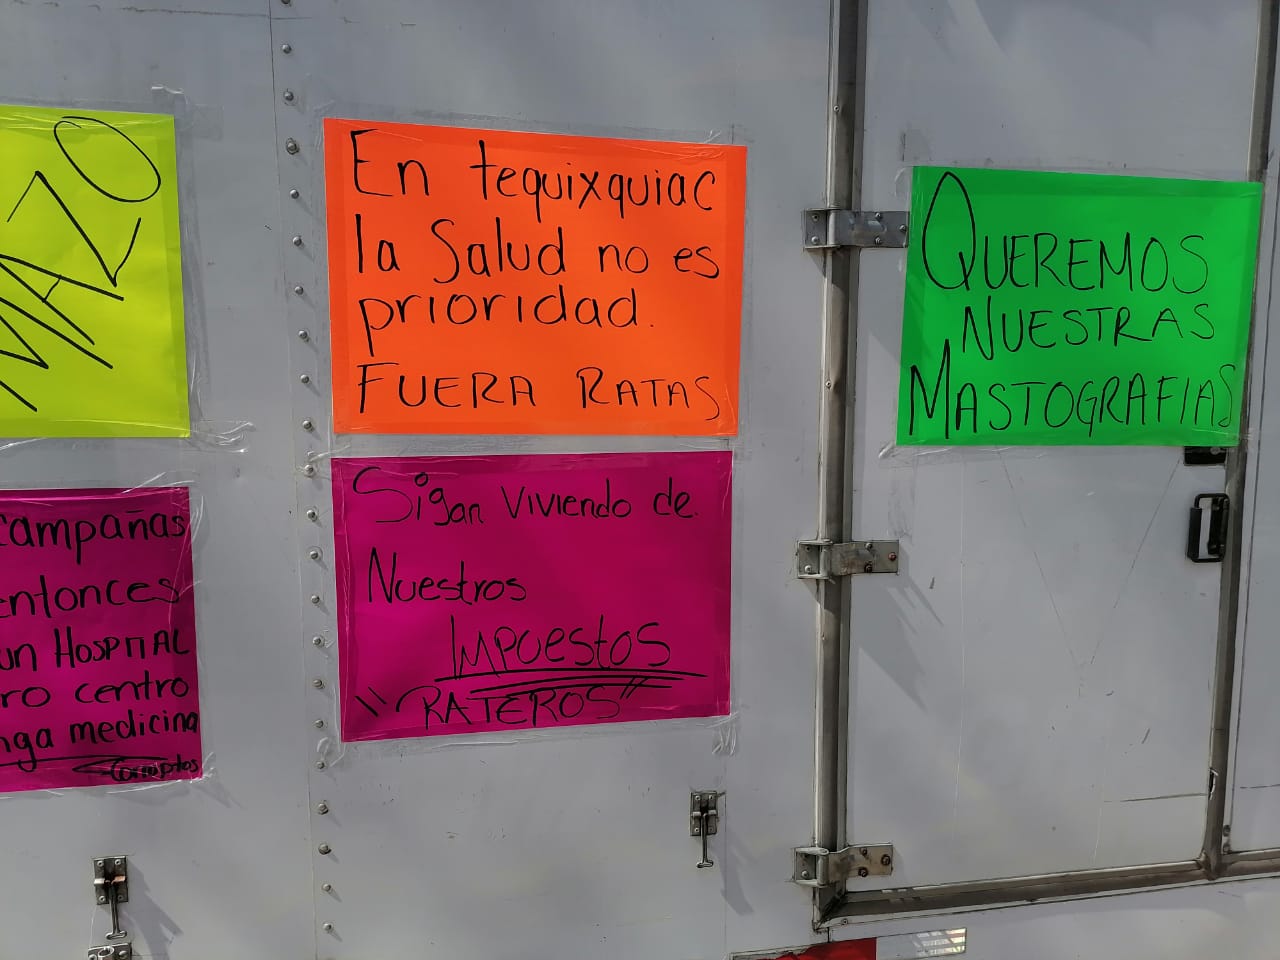 MAZO
En tequixquiac
la Salud no es
prioridad.
FUERA RATAS
QUEREMOS
NUESTRAS
MASTOGRAFIAS
campañas
entonces
un HOSPITAL
ro centro
nga medicina
Corruptos
Sigan viviendo de
Nuestros
IMPUESTOS
"RATEROS"